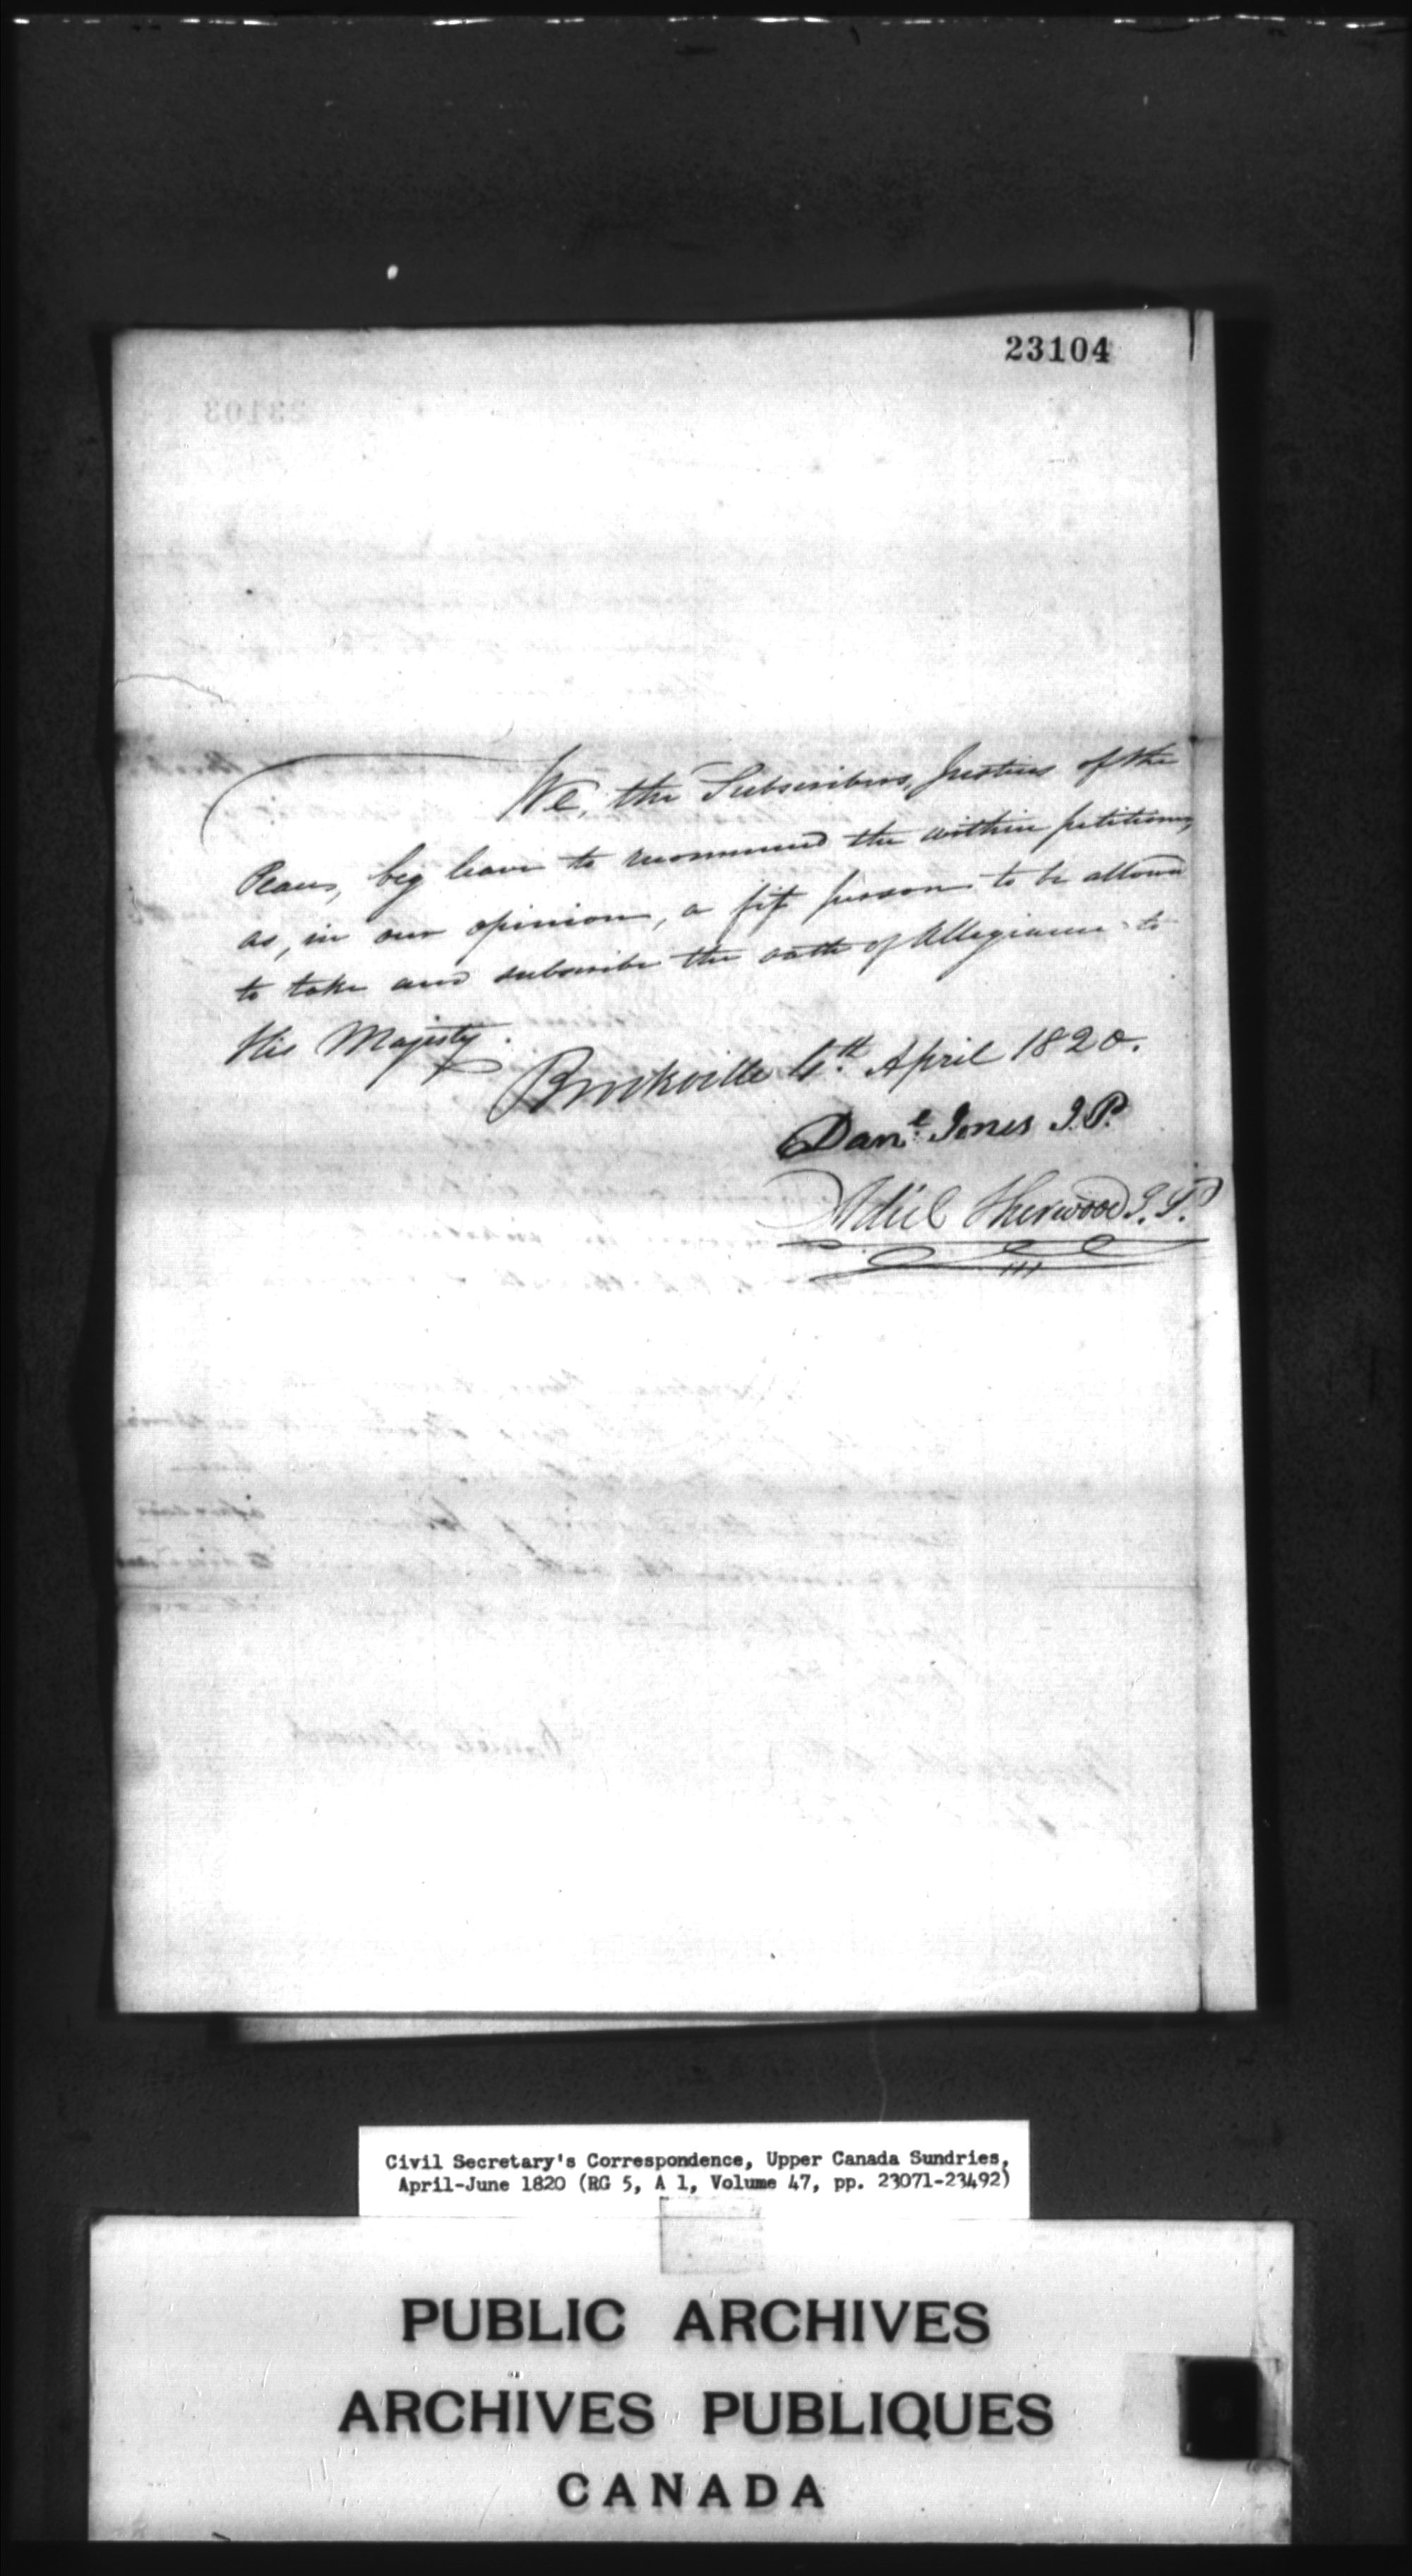 23104
We, the Subscribers, Justices of the
Peace, beg leave to recommend the within petitioner,
as, in our opinion, a fit person to be allowed
to take and subscribe the oath of Allegiance to
His Majesty.
Brockville 4th. April 1820.
Danl. Jones J.P.
Adiel Sherwood J.P.
Civil Secretary's Correspondence, Upper Canada Sundries,
April-June 1820 (RG 5, A 1, Volume 47, pp. 23071-23492)
PUBLIC ARCHIVES
ARCHIVES PUBLIQUES
CANADA